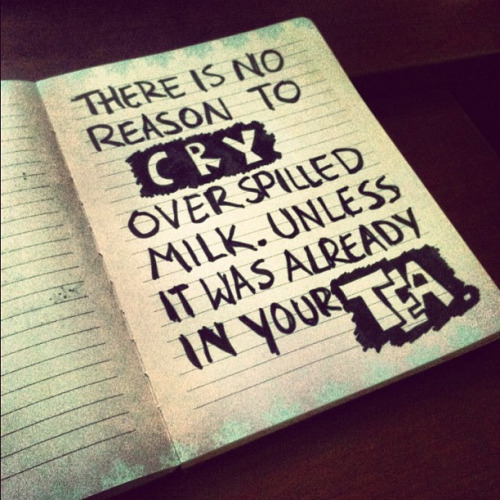 THERE IS NO
REASON TO
CRY
OVER SPILLED
MILK. UNLESS
IT WAS ALREADY
IN YOUR TEA.